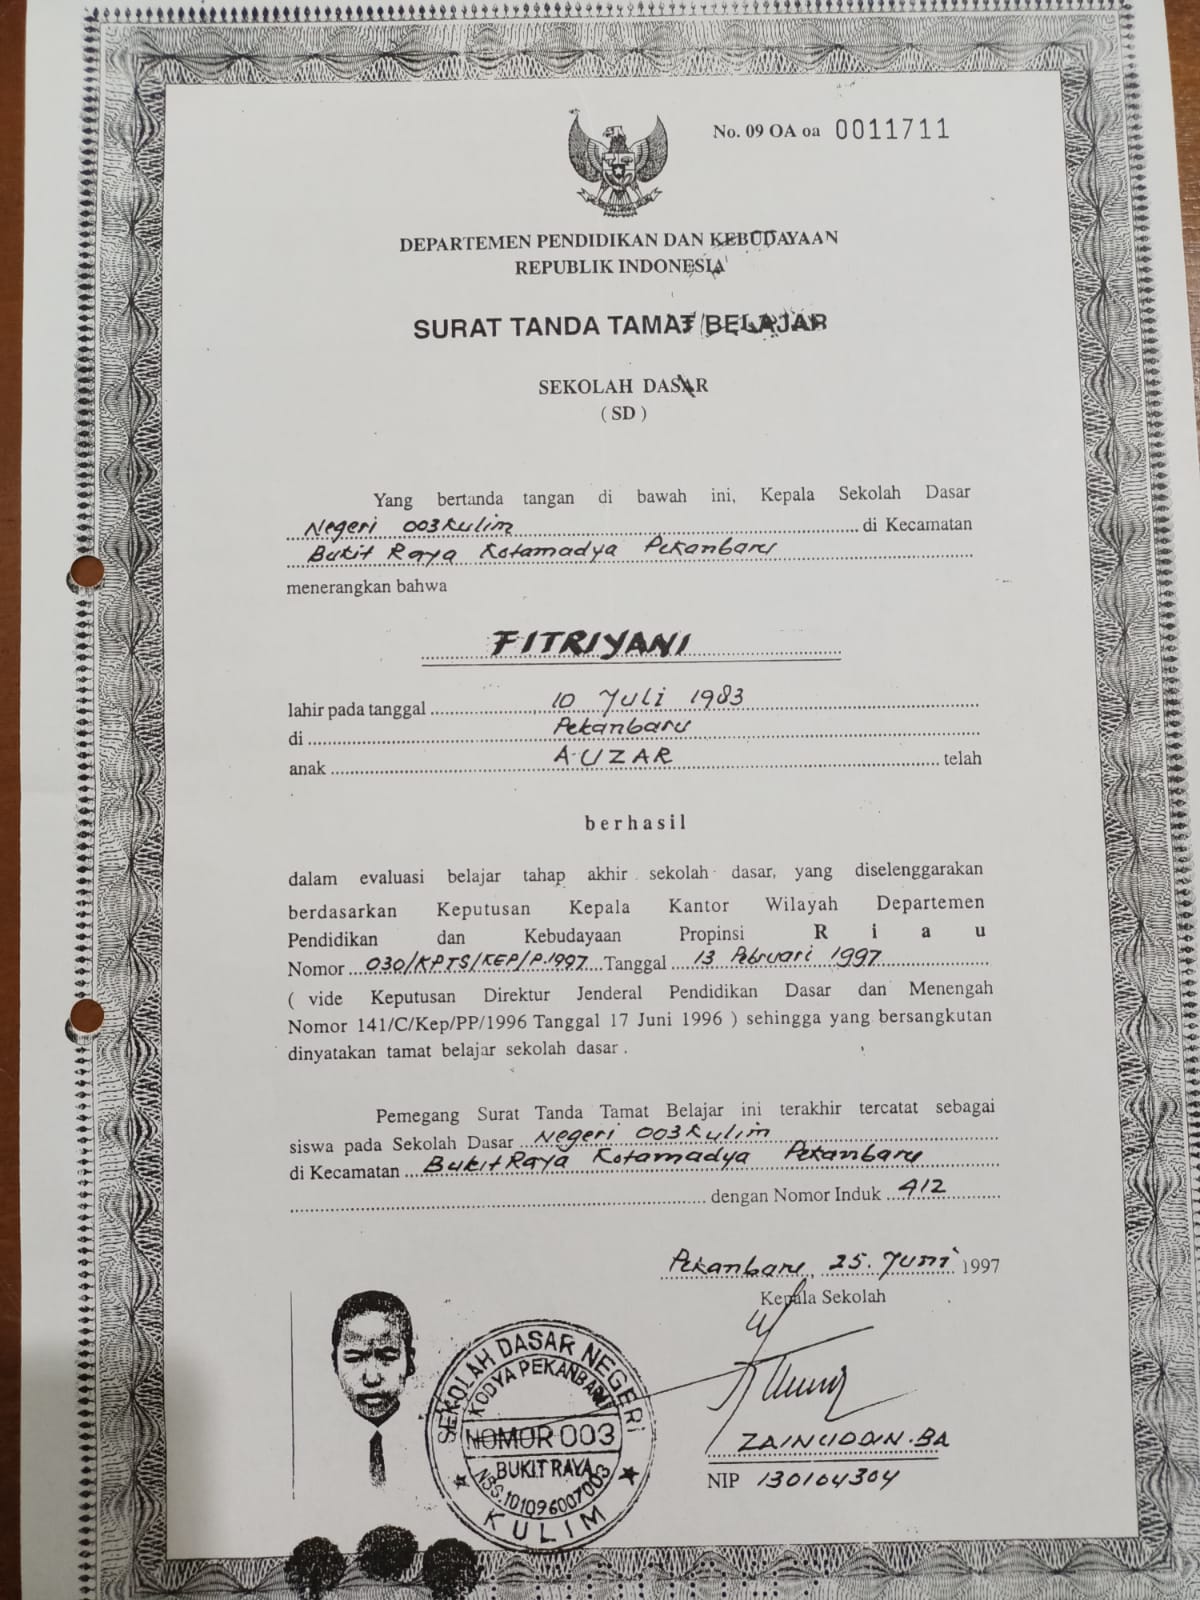 No. 09 OA oa 0011711
DEPARTEMEN PENDIDIKAN DAN KEBUDAYAAN
REPUBLIK INDONESIA
SURAT TANDA TAMAT BELAJAR
SEKOLAH DASAR
( SD )
Yang bertanda tangan di bawah ini, Kepala Sekolah Dasar
Negeri 003 Kulim di Kecamatan
Bukit Raya Kotamadya Pekanbaru
menerangkan bahwa
FITRIYANI
lahir pada tanggal 10 Juli 1983
di Pekanbaru
anak A.UZAR telah
berhasil
dalam evaluasi belajar tahap akhir sekolah dasar, yang diselenggarakan
berdasarkan Keputusan Kepala Kantor Wilayah Departemen
Pendidikan dan Kebudayaan Propinsi R i a u
Nomor 030/KPTS/KEP/P.1997 Tanggal 13 Pebruari 1997
( vide Keputusan Direktur Jenderal Pendidikan Dasar dan Menengah
Nomor 141/C/Kep/PP/1996 Tanggal 17 Juni 1996 ) sehingga yang bersangkutan
dinyatakan tamat belajar sekolah dasar .
Pemegang Surat Tanda Tamat Belajar ini terakhir tercatat sebagai
siswa pada Sekolah Dasar Negeri 003 Kulim
di Kecamatan Bukit Raya Kotamadya Pekanbaru
dengan Nomor Induk 412
Pekanbaru, 25 Juni 1997
Kepala Sekolah
SEKOLAH DASAR NEGERI
KODYA PEKANBARU
NOMOR 003
BUKIT RAYA
NSS.101096007003
KULIM
ZAINUDDIN.BA
NIP 130104304